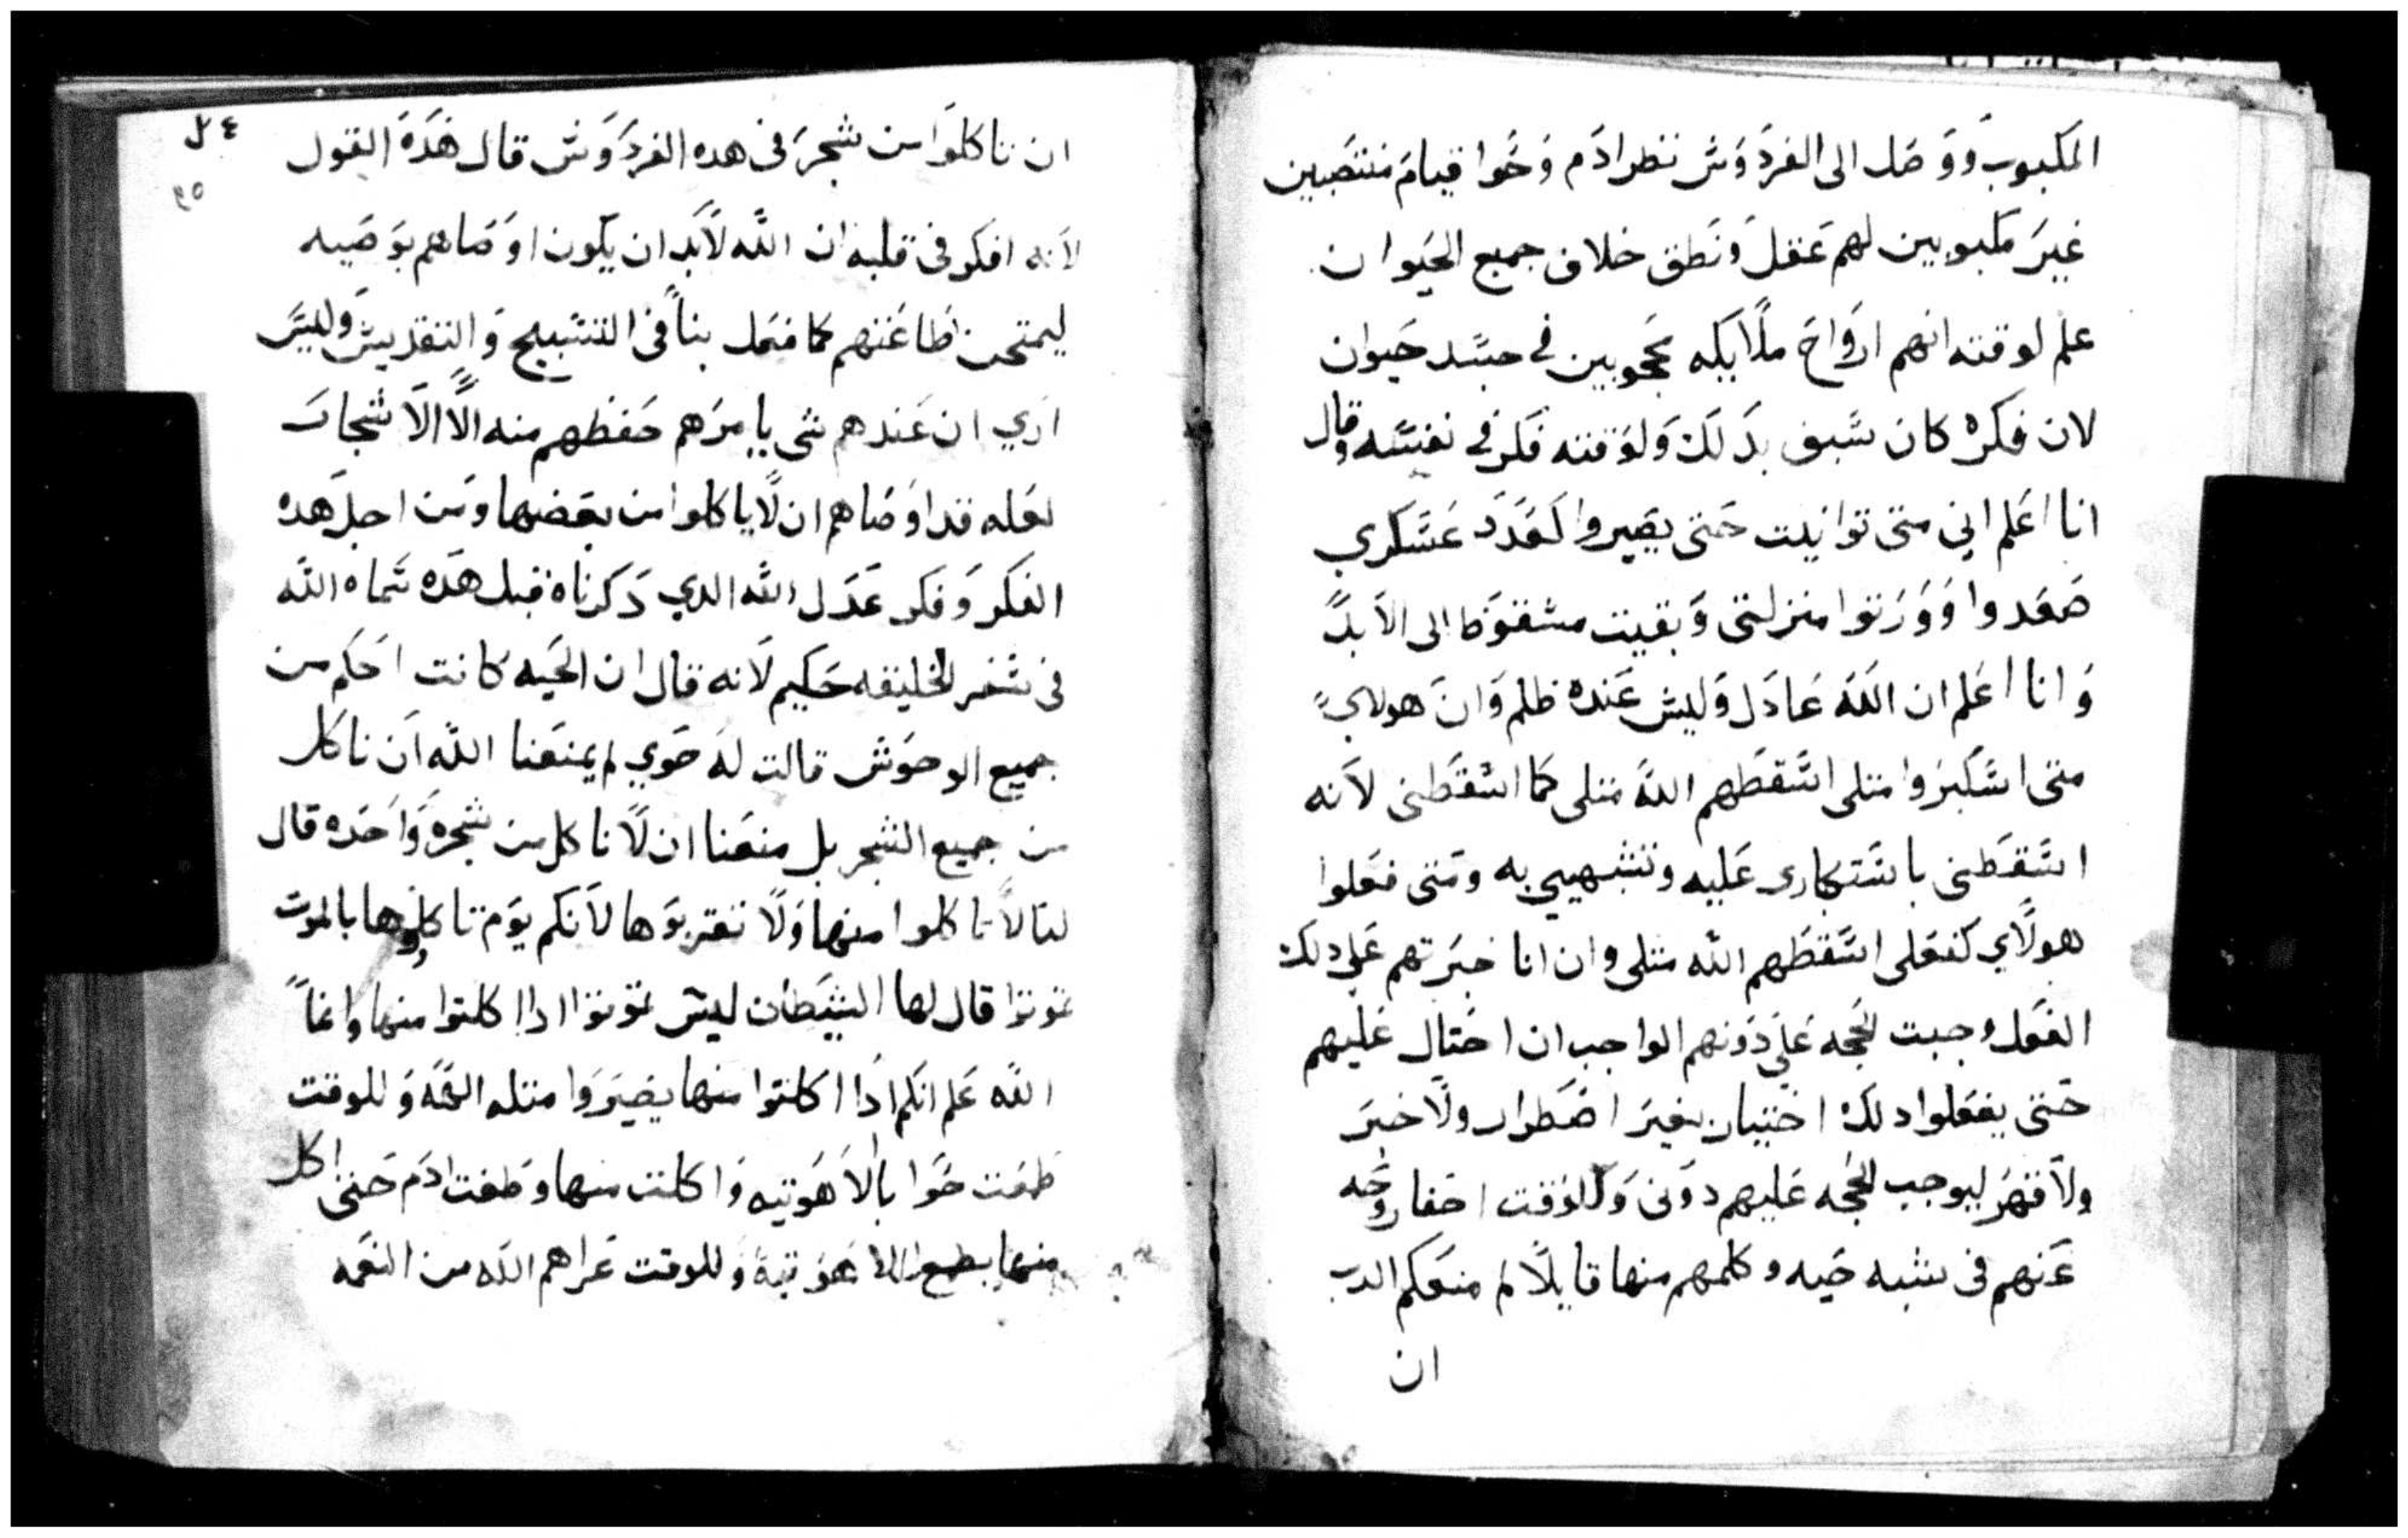 المكبوب ووصل الى الفردوس نظر ادم وحوا قيام منتصبين
غير مكبوبين لهم عقل ونطق خلاف جميع الحيوان
علم لوقته انهم ارواح ملايكه محجوبين في جسد حيوان
لان فكره كان سبق بدلك ولوقته فكر في نفسه وقال
انا اعلم اني متى توانيت حتى يصيروا كعدد عسكري
صعدوا وورتوا منزلتي وبقيت مسقوط الى الابد
وانا اعلم ان الله عادل وليس عنده ظلم وان هولاي
متى استكبروا متلى اسقطهم الله متلى كما اسقطنى لانه
اسقطنى باستكبارى عليه وتشبهيي به ومتى فعلوا
هولاي كفعلى اسقطهم الله متلى وان انا خبرتهم على دلك
الفعل وجبت الحجه على دونهم الواجب ان احتال عليهم
حتى يفعلوا دلك اختيار بغير اضطرار ولا خبر
ولا قهر ليوجب الحجه عليهم دونى وللوقت اخفا روحه
عنهم فى شبه حيه وكلمهم منها قايلا لم منعكم الرب
ان
٢٤
٢٥
ان تاكلوا من شجر فى هده الفردوس قال هده القول
لانه افكر فى قلبه ان الله لابد ان يكون اوصاهم بوصيه
ليمتحن طاعتهم كما فعل بنا فى التسبيح والتقديس وليس
ارى ان عندهم شى يامرهم حفظهم منه الا الاشجار
لعله قد اوصاهم ان لا ياكلوا من بعضها ومن اجل هده
الفكر وفكر عدل الله الدي دكرناه قبل هده سماه الله
فى سفر الخليقه حكيم لانه قال ان الحيه كانت احكم من
جميع الوحوش قالت له حوي لم يمنعنا الله ان ناكل
من جميع الشجر بل منعنا ان لا ناكل من شجره واحده قال
لنا لا تاكلوا منها ولا تقتربوها لانكم يوم تاكلوها بالموت
تموتوا قال لها الشيطان ليس تموتوا ادا اكلتوا منها وانما
الله علم انكم ادا اكلتوا منها يصيروا متله الهه وللوقت
طمعت حوا بالاهوتيه واكلت منها وطغت ادم حتى اكل
منها بطمع الاهوتيه وللوقت عراهم الله من النعمه